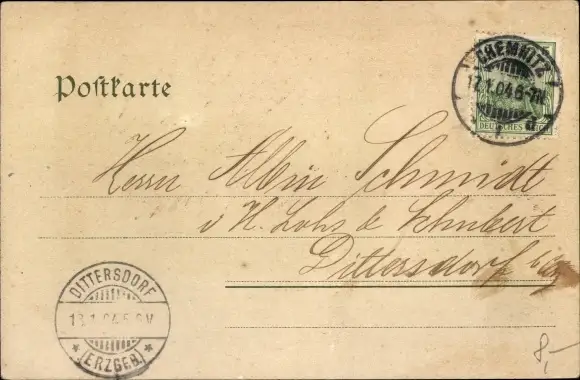 Postkarte
CHEMNITZ
17.1.04.6-7N.
DEUTSCHES REICH
Herrn Albin Schmidt
i/H. Lohs & Schubert
Dittersdorf
DITTERSDORF
18.1.04.5-6V
* (ERZGEB.) *
8,-